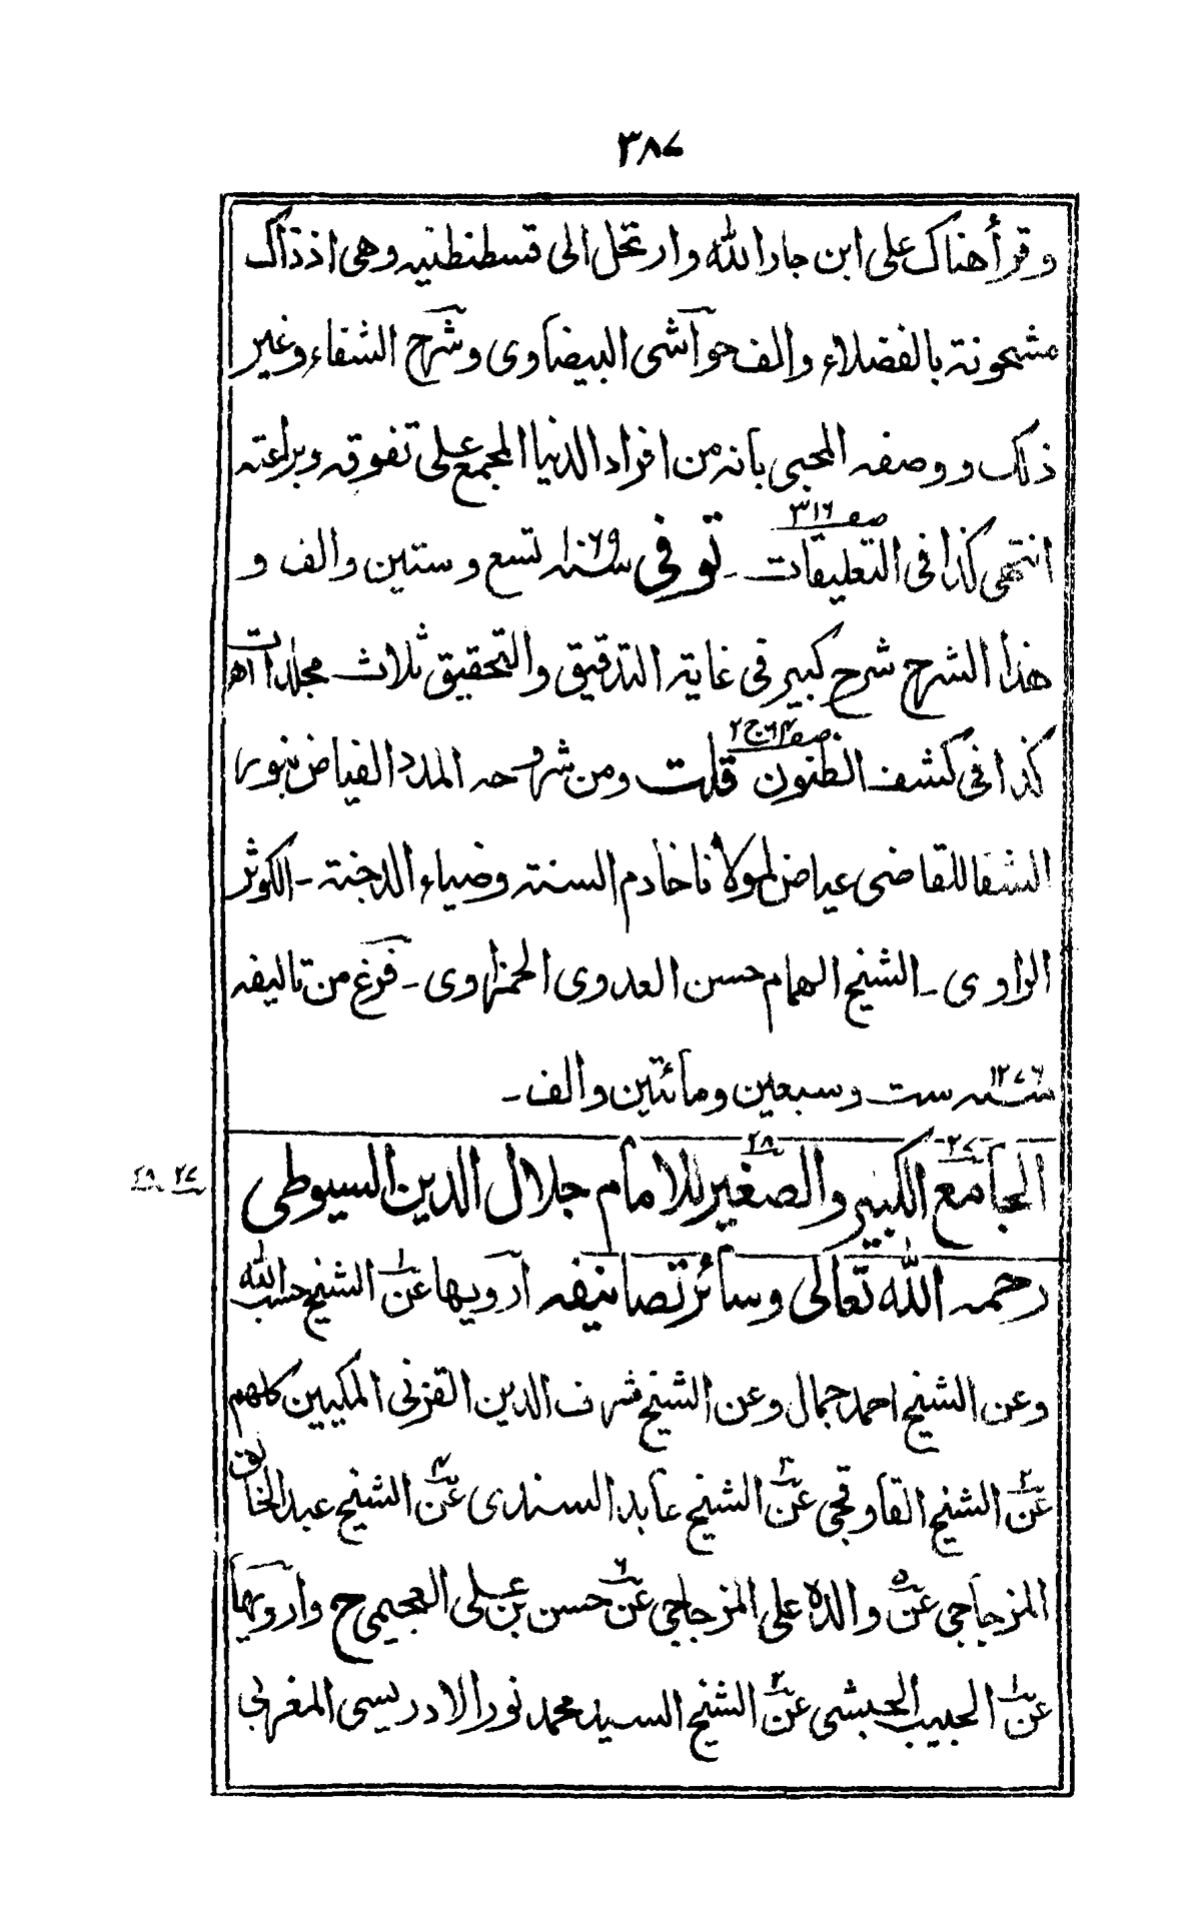 ٣٨٧
وقرأ هناك على ابن جار الله وارتحل الى قسطنطنيه وهى اذ ذاك
مشحونة بالفضلاء والف حواشى البيضاوى وشرح الشفاء وغير
ذلك ووصفه المحبى بانه من افراد الدنيا المجمع على تفوقه وبراعته
انتهى كذا فى التعليقات صفـ ٣١٦ ـ توفى سنه ١٠٦٩ تسع وستين والف و
هذا الشرح شرح كبير فى غاية التدقيق والتحقيق ثلاث مجلدات اھ
كذا فى كشف الظنون صفـ ٦٤ ج ٢ قلت ومن شروحه المدد الفياض بنور
الشفا للقاضى عياض لمولانا خادم السنة وضياء الدجنة ـ الكوثر
الراوى ـ الشيخ الهمام حسن العدوى الحمزاوى ـ فرغ من تاليفه
سنه ١٢٧٦ ست وسبعين ومائتين والف ـ
الجامع ٢٧ الكبير والصغير ٢٨ للامام جلال الدين السيوطى
٢٧ ٢٨
رحمه الله تعالى وسائر تصانيفه ارويها عن ١ الشيخ حسب الله
وعن الشيخ احمد جمال وعن الشيخ شرف الدين القزنى المكيين كلهم
عن ٢ الشيخ القاوقجى عن ٣ الشيخ عابد السندى عن ٤ الشيخ عبد الخالق
المزجاجى عن ٥ والده على المزجاجى عن ٦ حسن بن على العجيمى ح وارويها
عن ١ الحبيب الحبشى عن ٢ الشيخ السيد محمد نور الادريسى المغربى